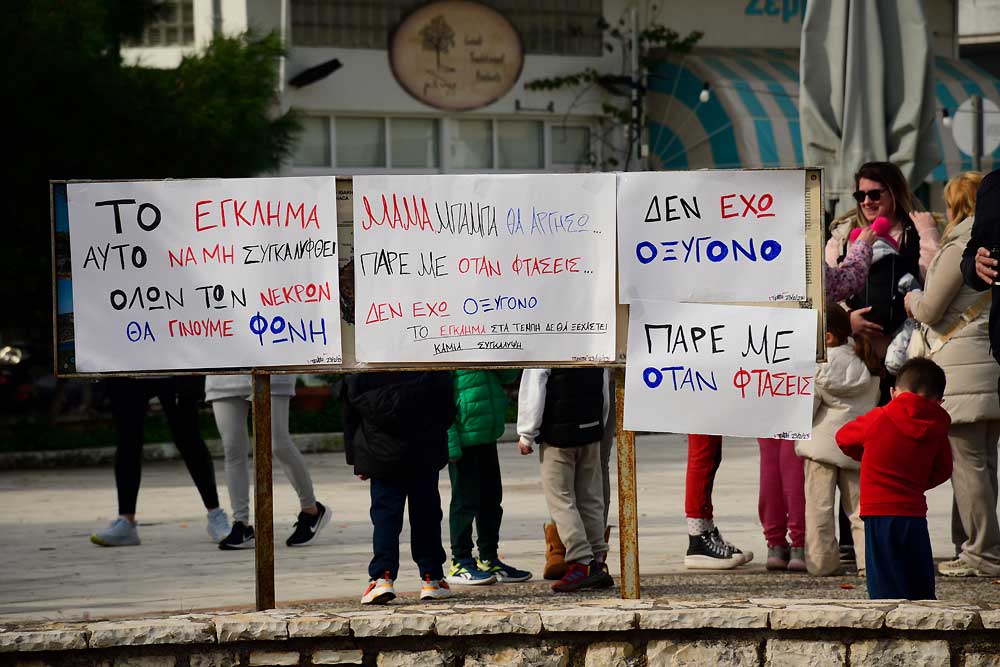 ΤΟ ΕΓΚΛΗΜΑ
ΑΥΤΟ ΝΑ ΜΗ ΣΥΓΚΑΛΥΦΘΕΙ
ΟΛΩΝ ΤΩΝ ΝΕΚΡΩΝ
ΘΑ ΓΙΝΟΥΜΕ ΦΩΝΗ
ΜΑΜΑ, ΜΠΑΜΠΑ ΘΑ ΑΡΓΗΣΩ...
ΠΑΡΕ ΜΕ ΟΤΑΝ ΦΤΑΣΕΙΣ...
ΔΕΝ ΕΧΩ ΟΞΥΓΟΝΟ
ΤΟ ΕΓΚΛΗΜΑ ΣΤΑ ΤΕΜΠΗ ΔΕ ΘΑ ΞΕΧΑΣΤΕΙ
ΚΑΜΙΑ ΣΥΓΚΑΛΥΨΗ
ΔΕΝ ΕΧΩ
ΟΞΥΓΟΝΟ
ΠΑΡΕ ΜΕ
ΟΤΑΝ ΦΤΑΣΕΙΣ
Greek
Traditional
Products